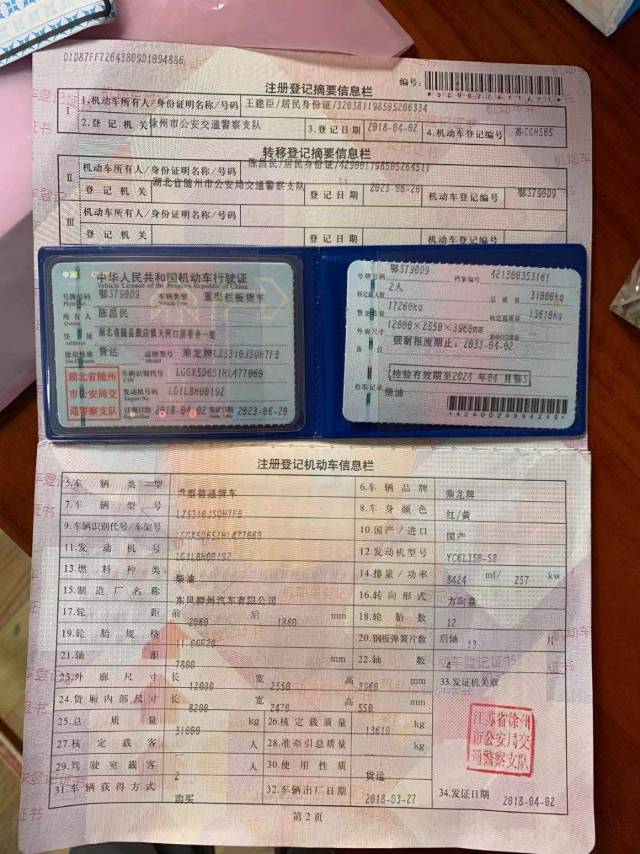 D1D87FF72643809D1094886
注册登记摘要信息栏
编号:
I 1.机动车所有人/身份证明名称/号码 王建臣/居民身份证/320381198505206334
2.登记机关 徐州市公安交通警察支队 3.登记日期 2018-04-02 4.机动车登记编号 苏CGM505
转移登记摘要信息栏
II 机动车所有人/身份证明名称/号码 陈昌民/居民身份证/429001198505264511
登记机关 湖北省随州市公安局交通警察支队 登记日期 2023-06-20 机动车登记编号 鄂S790D9
III 机动车所有人/身份证明名称/号码
登记机关 登记日期 机动车登记编号
中国
中华人民共和国机动车行驶证
Vehicle License of the People's Republic of China
号牌号码 鄂S790D9 车辆类型 重型栏板货车
所有人 陈昌民
Owner
住址 湖北省随县殷店镇天河口居委会一组
Address
使用性质 货运 品牌型号 乘龙牌LZ5310JSQH7FB
Use Character Model
湖北省随州市公安局交通警察支队
车辆识别代号 LGGX5D651HL477060
VIN
发动机号码 LG1L8H00192
Engine No.
注册日期 2018-04-02 发证日期 2023-06-20
号牌号码 鄂S790D9 档案编号 421300353161
核定载人数 2人 总质量 31000kg
整备质量 17260kg 核定载质量 13610kg
外廓尺寸 12000×2550×3960mm
强制报废期止: 2033-04-02
检验有效期至2024年04月鄂S
检验记录 柴油
*4240024994240*
注册登记机动车信息栏
5.车辆类型 6.车辆品牌 乘龙牌
7.车辆型号 LZ5310JSQH7FB 8.车身颜色 红/黄
9.车辆识别代号/车架号 LGGX5D651HL477060 10.国产/进口 国产
11.发动机号 LG1L8H00192 12.发动机型号 YC6L350-50
13.燃料种类 柴油 14.排量/功率 8424 ml/ 257 kw
15.制造厂名称 东风柳州汽车有限公司 16.转向形式 方向盘
17.轮距 前 2060 后 1860 mm 18.轮胎数 12
19.轮胎规格 11.00R20 20.钢板弹簧片数 后轴 13 片
21.轴距 7800 mm 22.轴数 4
23.外廓尺寸 长 12000 宽 2550 高 3960 mm 33.发证机关章
24.货厢内部尺寸 长 8200 宽 2470 高 550 mm
25.总质量 31000 kg 26.核定载质量 13610 kg
27.核定载客 人 28.准牵引总质量 kg
29.驾驶室载客 2 人 30.使用性质 货运
31.车辆获得方式 购买 32.车辆出厂日期 2018-03-27 34.发证日期 2018-04-02
江苏省徐州市公安局交通警察支队
第2页